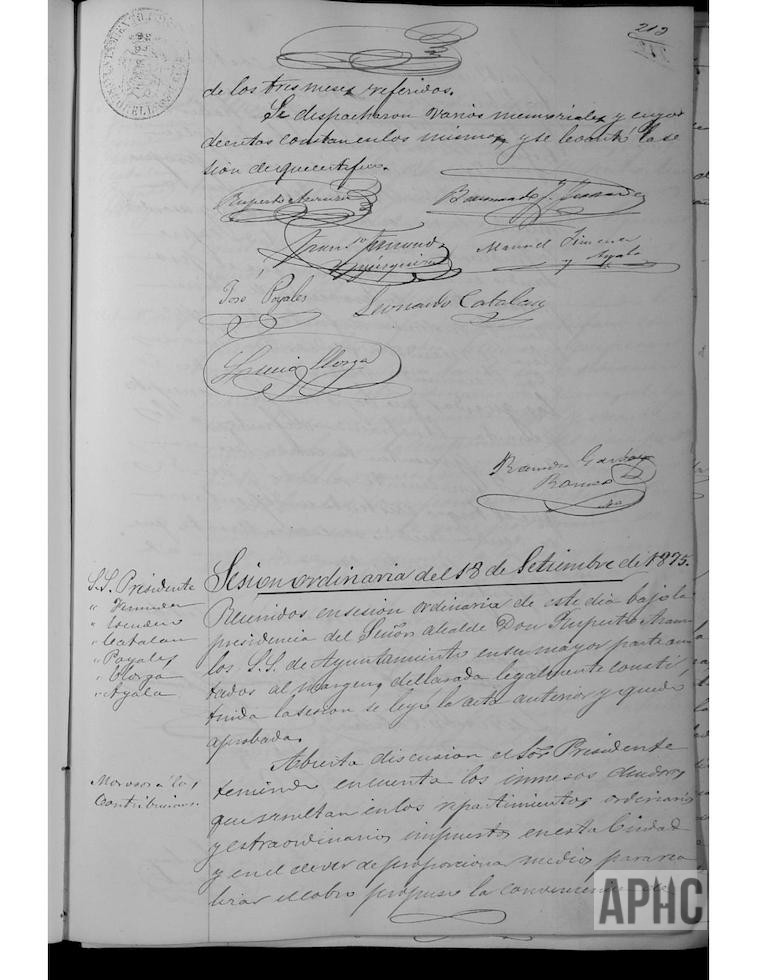 213
de los tres meses referidos.
Se despacharon varios memoriales y cuyos
decretos constan en los mismos, y se levantó la se
sion de que certifico.
Ruperto
Raimundo J.
Fran.co
Manuel Jimenez
y Ayala
José Poyales
Leonardo Catalan
Llorga
Ramon
Ramos
Sesion ordinaria del 18 de Setiembre de 1875.
S.S. Presidente
"
" Escudero
" Catalan
" Poyales
" Llorga
" Ayala
Reunidos en sesion ordinaria de este dia bajo la
presidencia del Señor Alcalde Don Ruperto
los S.S. de Ayuntamiento en su mayor parte ano
tados al margen, declarada legalmente consti
tuida la sesion se leyó la acta anterior y quedó
aprobada.
Morosos a las
Contribuciones.
Abierta discusion el Sor. Presidente
teniendo en cuenta los inmesos deudores
que resultan en los repartimientos ordinarios
y estraordinarios impuestos en esta Ciudad
y en el dever de proporcionar medios para rea
lizar el cobro propuso la conveniencia de
APHC